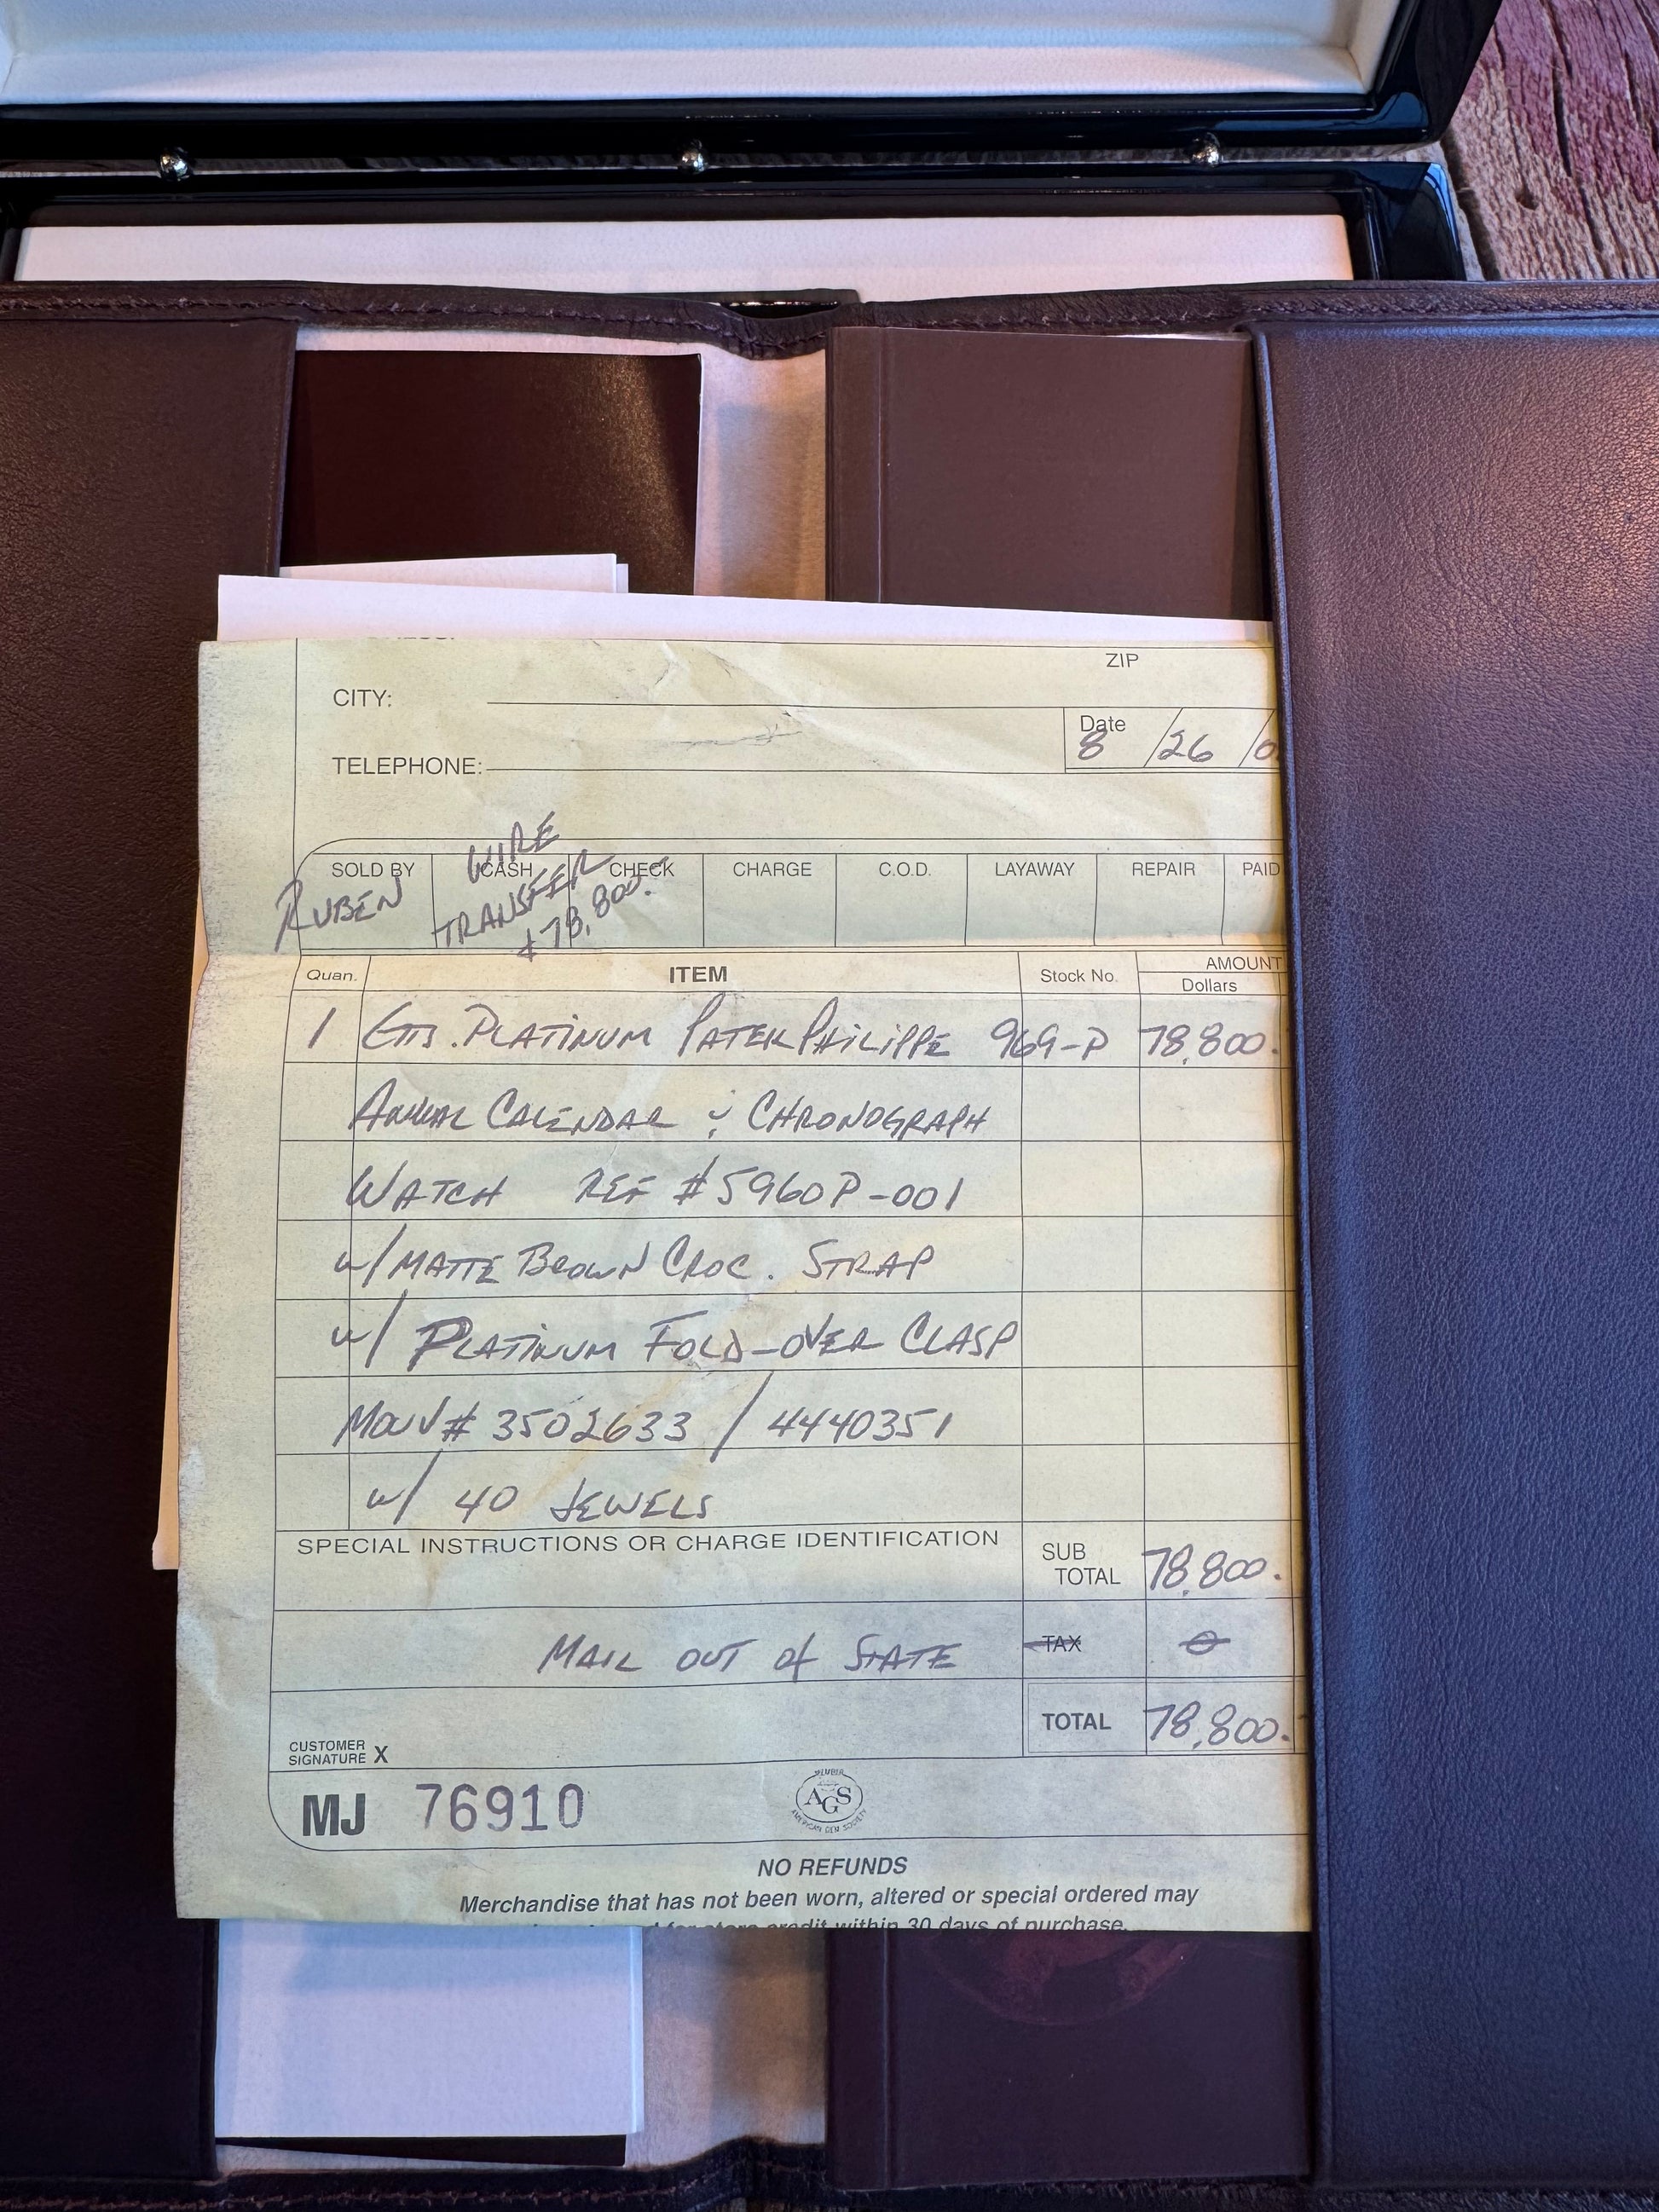 ZIP
CITY:
Date
8 /26 /0
TELEPHONE:
SOLD BY CASH CHECK CHARGE C.O.D. LAYAWAY REPAIR PAID
RUBEN WIRE
TRANSFER
$78,800.
Quan. ITEM Stock No. AMOUNT
Dollars
1 GTS. PLATINUM PATEK PHILIPPE 969-P 78,800.
ANNUAL CALENDAR & CHRONOGRAPH
WATCH REF #5960P-001
w/MATTE BROWN CROC. STRAP
w/ PLATINUM FOLD-OVER CLASP
MOUV# 3502633 / 4440351
w/ 40 JEWELS
SPECIAL INSTRUCTIONS OR CHARGE IDENTIFICATION
SUB
TOTAL 78,800.
MAIL OUT of STATE TAX 0
TOTAL 78,800.
CUSTOMER
SIGNATURE X
MJ 76910
MEMBER
AGS
AMERICAN GEM SOCIETY
NO REFUNDS
Merchandise that has not been worn, altered or special ordered may
for store credit within 30 days of purchase.